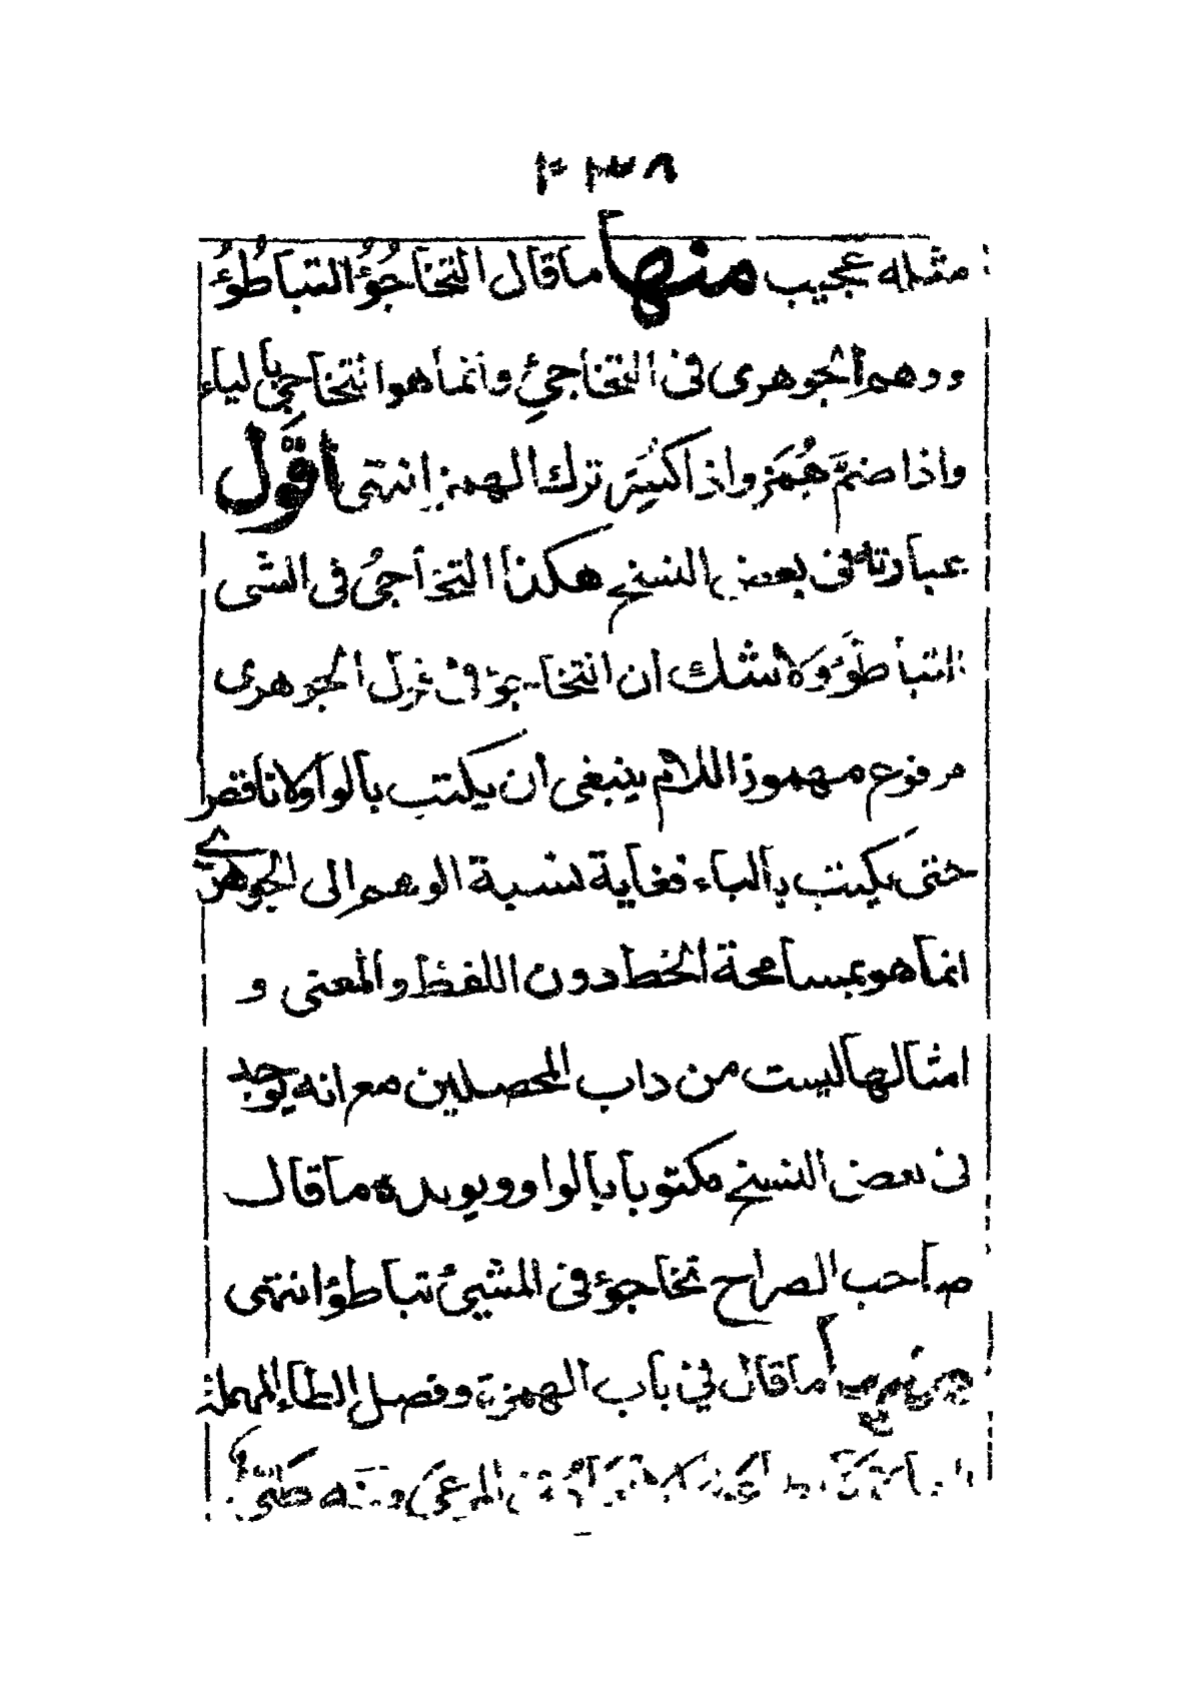 مثله عجيب منها ما قال التخاجُؤُ التباطُؤُ
ووهم الجوهرى فى التخاجئ وانما هو التخاجى بالياء
واذا ضمَّ هُمَز واذا كسَر ترك الهمز انتهى اقول
عبارته فى بعض النسخ هكذا التخاجُى فى المشى
التباطؤ ولا شك ان التخاجؤ فى قول الجوهرى
مرفوع مهموز اللام ينبغى ان يكتب بالواو لا ناقص
حتى يكتب بالياء فغاية نسبة الوهم الى الجوهرى
انما هو بمسامحة الخط دون اللفظ والمعنى و
امثالها ليست من داب المحصلين مع انه يوجد
فى بعض النسخ مكتوبا بالواو ويويده ما قال
صاحب الصراح تخاجؤ فى المشىٔ تباطؤ انتهى
ما قال فى باب الهمزة وفصل الطاء المهملة